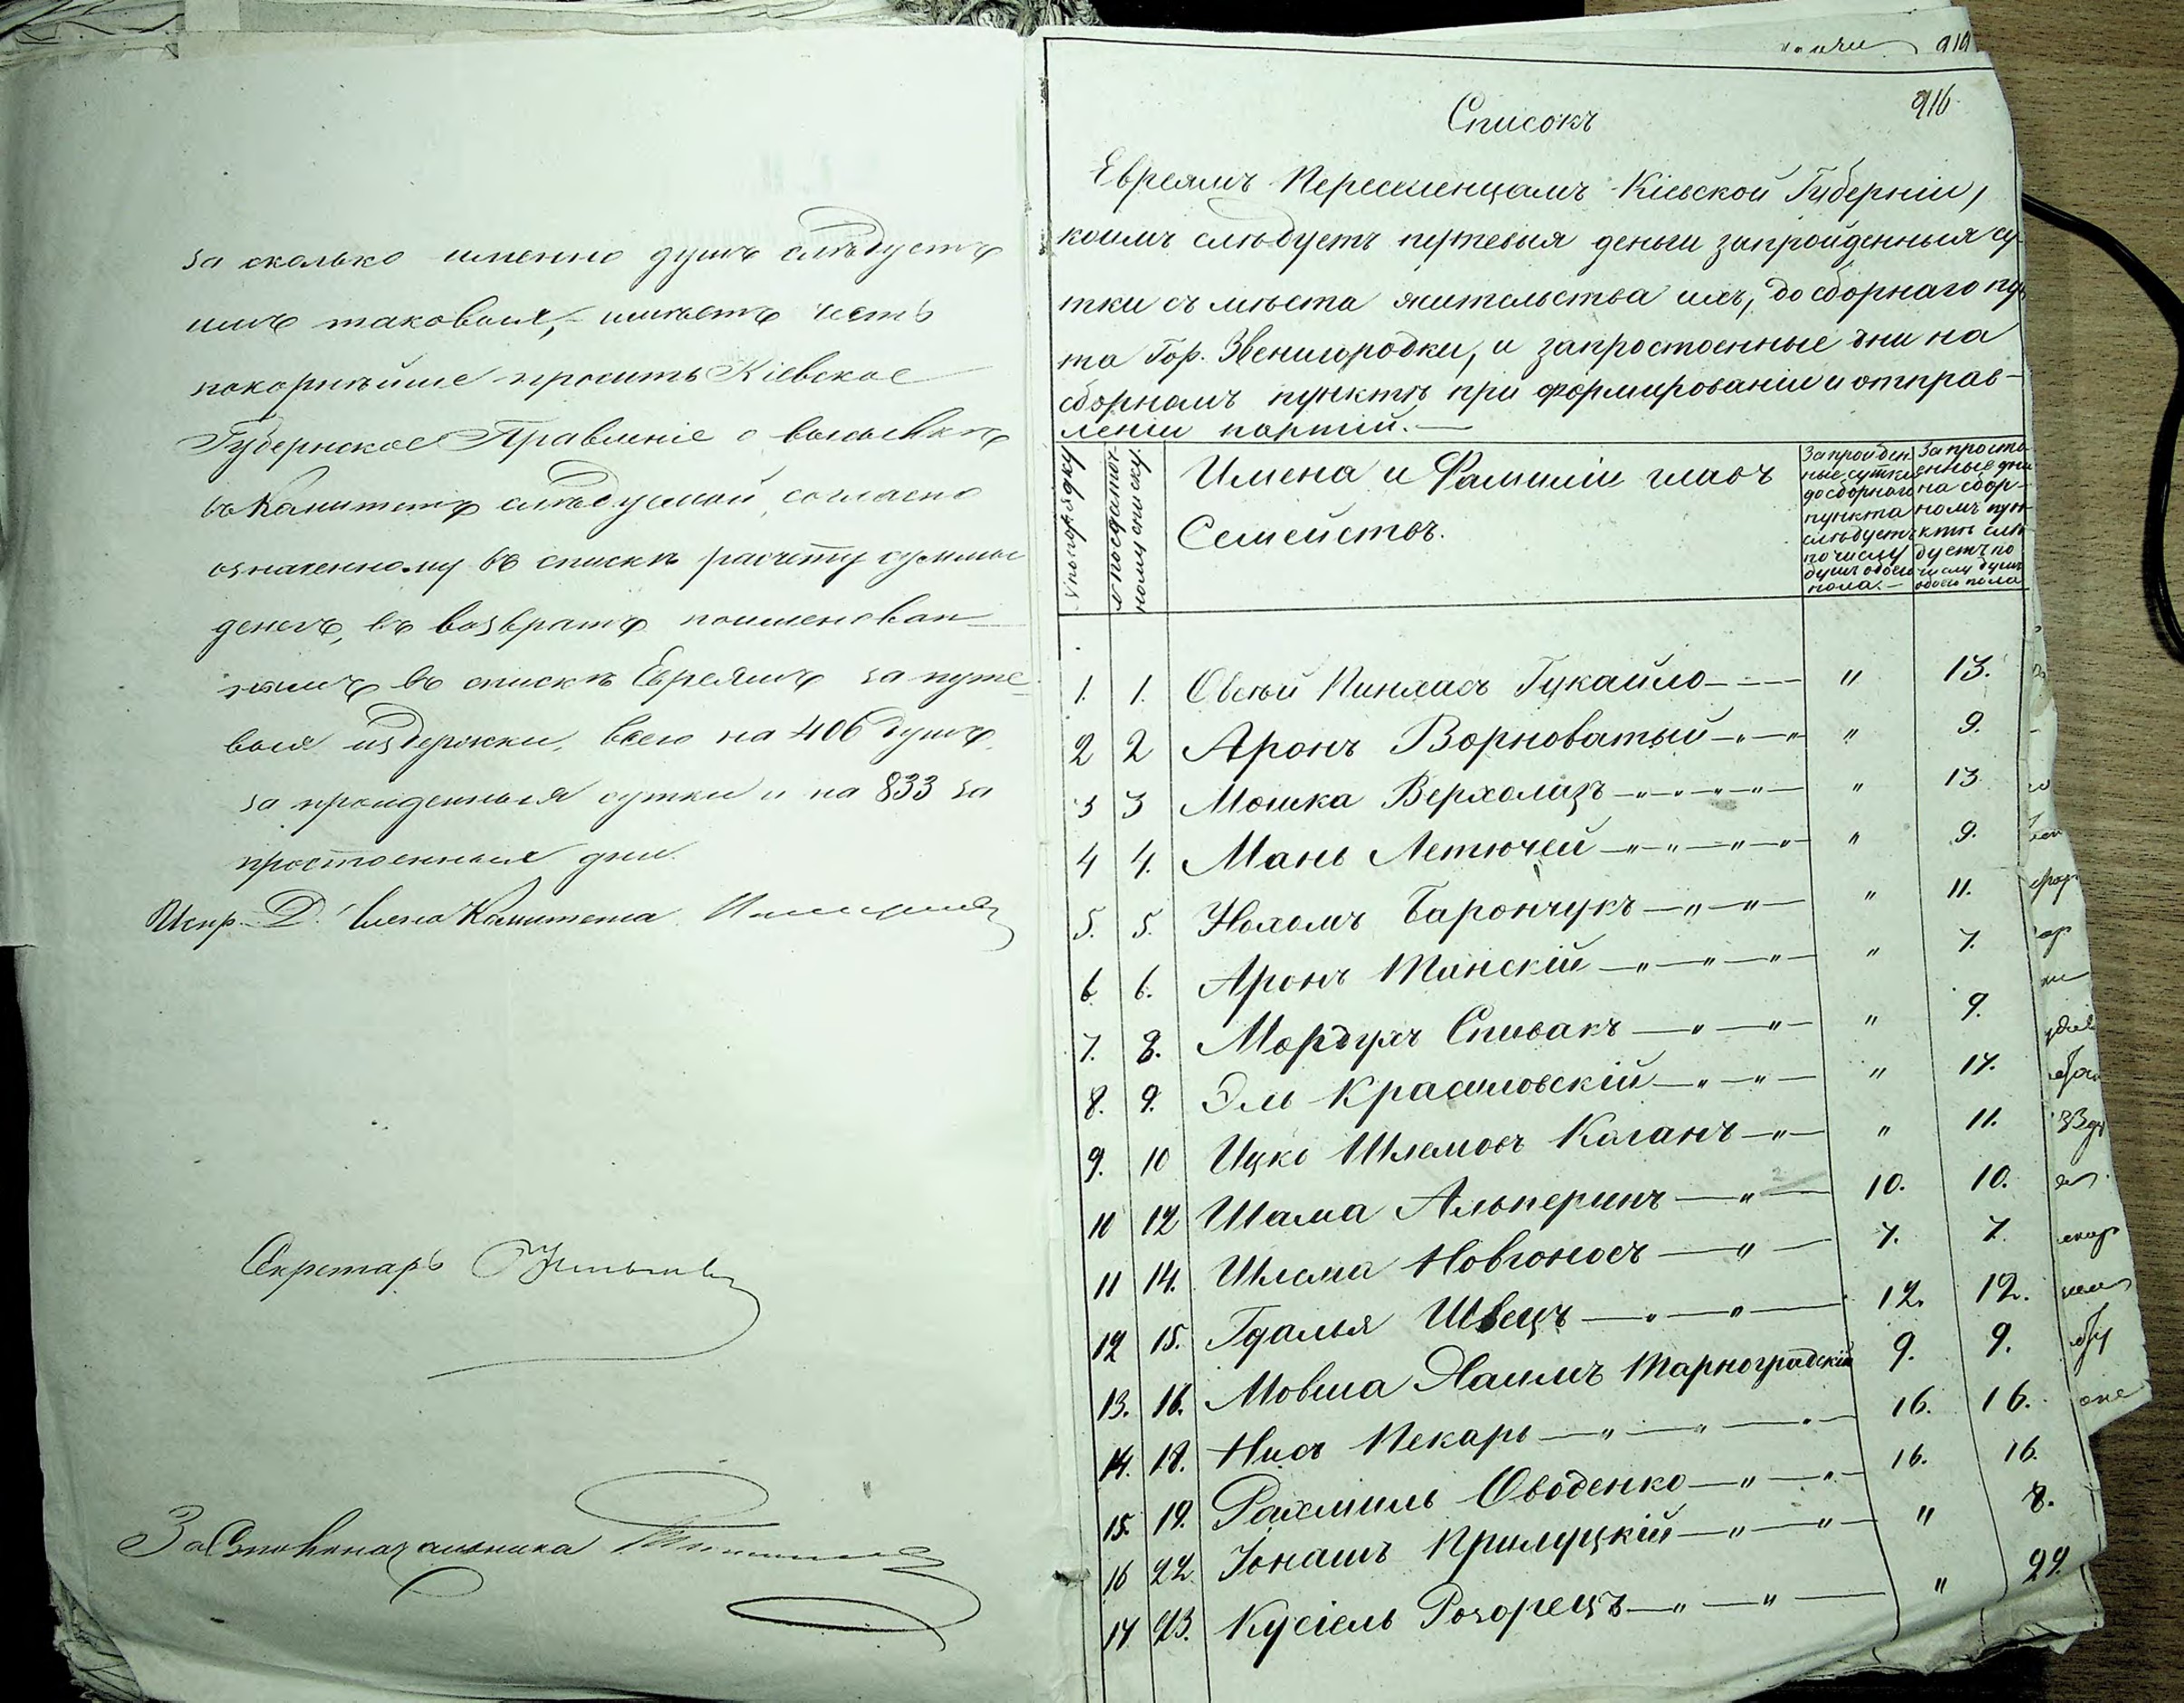 за сколько именно душъ слѣдуетъ
имъ таковыя, имѣетъ честь
покорнѣйше просить Кіевское
Губернское Правленіе о высылкѣ
въ Комитетъ слѣдуемой, согласно
означенному въ спискѣ расчету суммы
денегъ, въ возвратъ поименован-
нымъ въ спискѣ Евреямъ за путе-
выя издержки, всего на 406 душъ
за пройденныя сутки и на 833 за
простоенныя дни.
Испр. Д. Члена Комитета
Секретарь
За Столоначальника
919
916
Списокъ
Евреямъ Переселенцамъ Кіевской Губерніи,
коимъ слѣдуетъ путевыя деньги запройденныя су-
тки съ мѣста жительства ихъ, до сборнаго пун
та Гор. Звенигородки, и запростоенные дни на
сборномъ пунктѣ при формированіи и отправ-
леніи партій.—
№ по порядку
№ по седаточ-
ному списку.
Имена и Фамиліи главъ
Семействъ.
Запройден
ные сутки
до сборнаго
пункта
слѣдуетъ
по числу
душъ обоего
пола.—
За просто
енные дни
на сбор-
номъ пун-
ктѣ слѣ
дуетъ по
числу душъ
обоего пола
1. 1. Овсѣй Пинхасъ Гукайло — " 13.
2 2 Аронъ Ворноватый — " 9.
3 3 Мошка Верхолазъ — " 13
4 4. Мань Летючей — " 9.
5. 5. Нохомъ Барончукъ — " 11.
6 6. Аронъ Танскій — " 7.
7. 8. Мордухъ Спивакъ — " 9.
8. 9. Эль Красиловскій — " 17.
9. 10 Ицко Шлемовъ Каганъ — " 11.
10 12 Шама Альперинъ — 10. 10.
11 14. Шлема Новгоносъ — 7. 7.
12 15. Гдалья Швецъ — 12. 12.
13. 16. Мовша Хаимъ Тарноградскій 9. 9.
14. 18. Нисъ Пекарь — 16. 16.
15. 19. Рахмиль Оводенко — 16. 16.
16 22. Іонашъ Прилуцкій — " 8.
17 23. Кусіель Розорецъ — " 22.